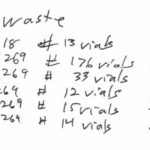 waste
18 # 13 vials
269 # 176 vials
269 # 33 vials
269 # 12 vials
269 # 15 vials
269 # 14 vials